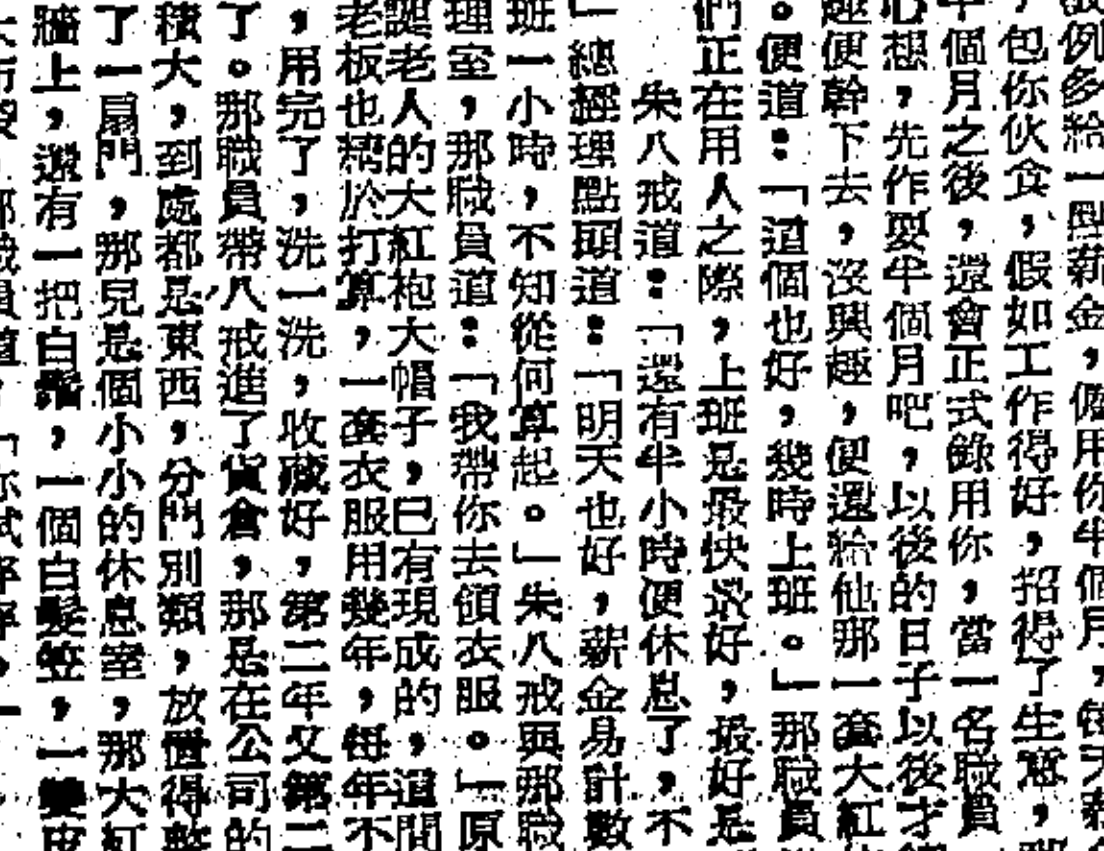 例多給一點薪金，僱用你半個月，每天
，包你伙食，假如工作得好，招得了生意，
半個月之後，還會正式錄用你，當一名職員
心想，先作耍半個月吧，以後的日子以後才
趣便幹下去，沒興趣，便還給他那一套大紅
。便道：「這個也好，幾時上班。」那職員
們正在用人之際，上班是最快最好，最好是
朱八戒道：「還有半小時便休息了，不
」總經理點頭道：「明天也好，薪金易計數
班一小時，不知從何算起。」朱八戒與那職
理室，那職員道：「我帶你去領衣服。」原
誕老人的大紅袍大帽子，已有現成的，這間
老板也精於打算，一套衣服用幾年，每年不
，用完了，洗一洗，收藏好，第二年又第二
了。那職員帶八戒進了貨倉，那是在公司的
積大，到處都是東西，分門別類，放置得整
了一扇門，那兒是個小小的休息室，那大紅
牆上，還有一把白鬚，一個白髮笠，一雙皮